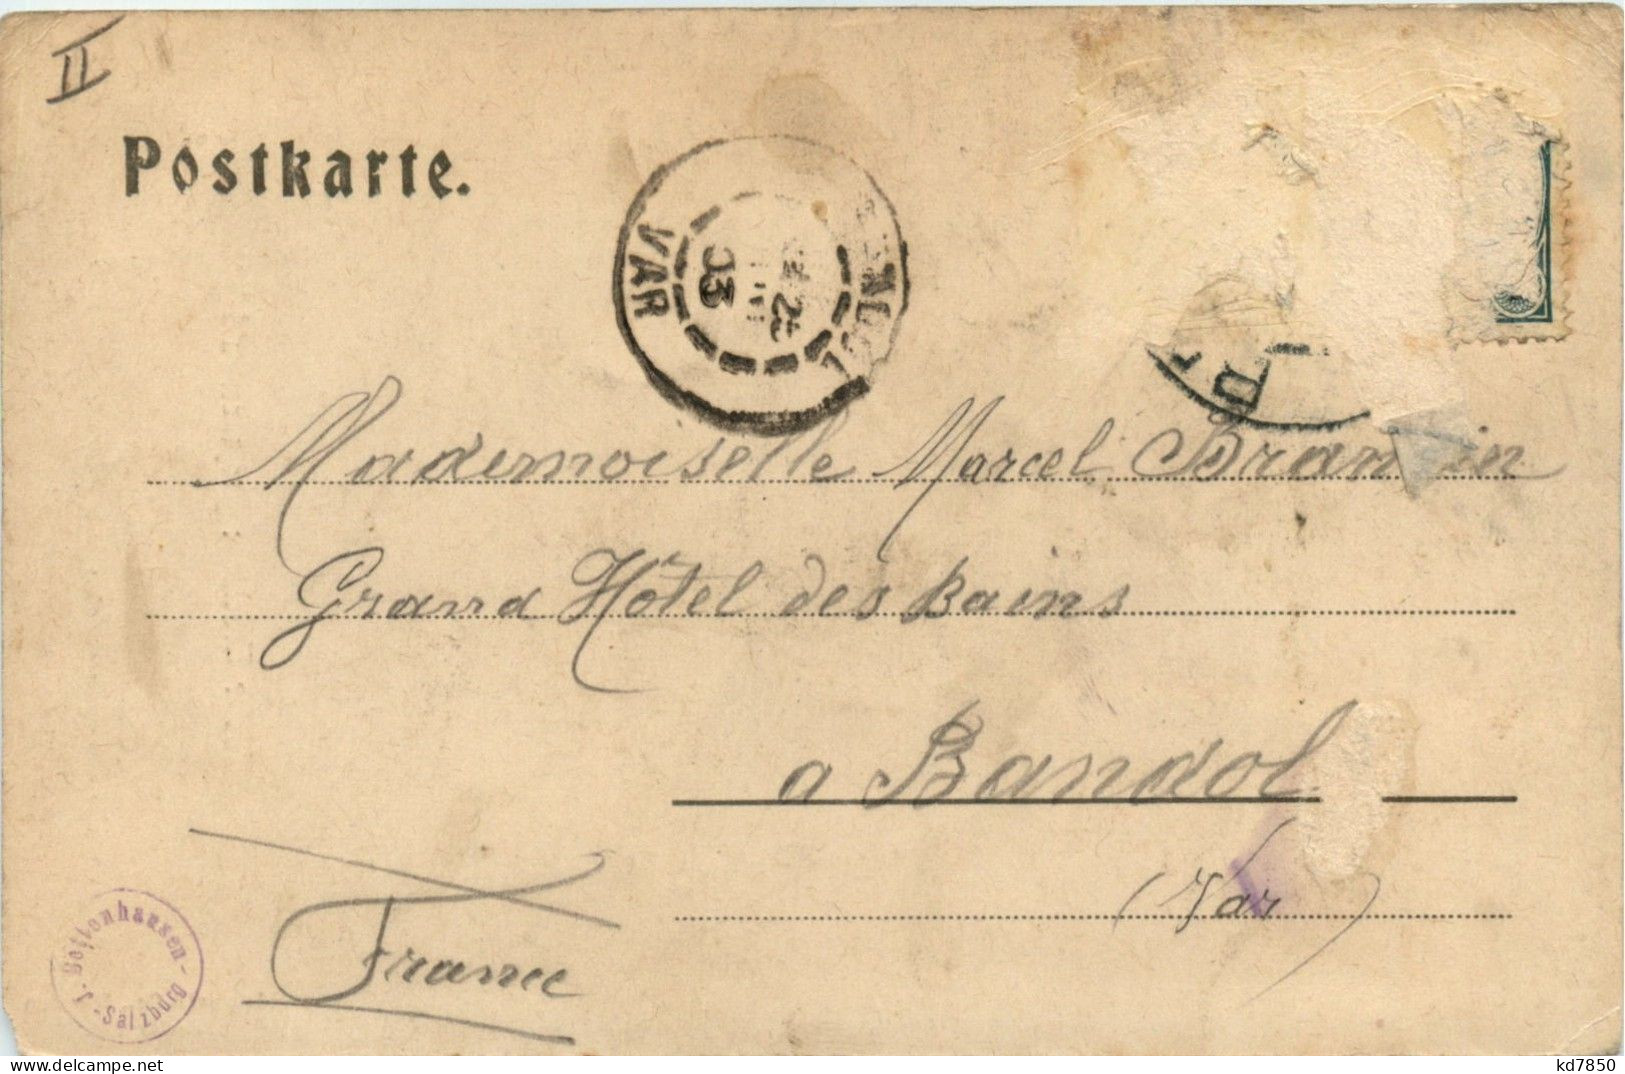 II
Postkarte.
VAR
03
Mademoiselle Marcel
Grand Hôtel des Bains
a Bandol
(Var)
France
J. Bettenhausen - Salzburg
kd7850